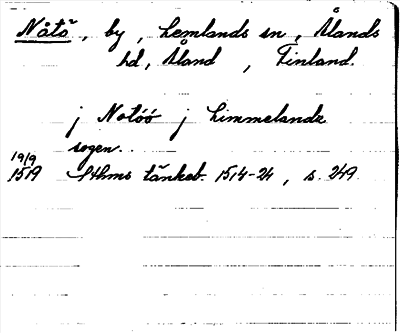 Nåtö, by, Lemlands sn, Ålands
hd, Åland, Finland.
j Notóó j Limmelandz
sogen.
19/9
1519 Sthms tänkeb. 1514-24, s. 249